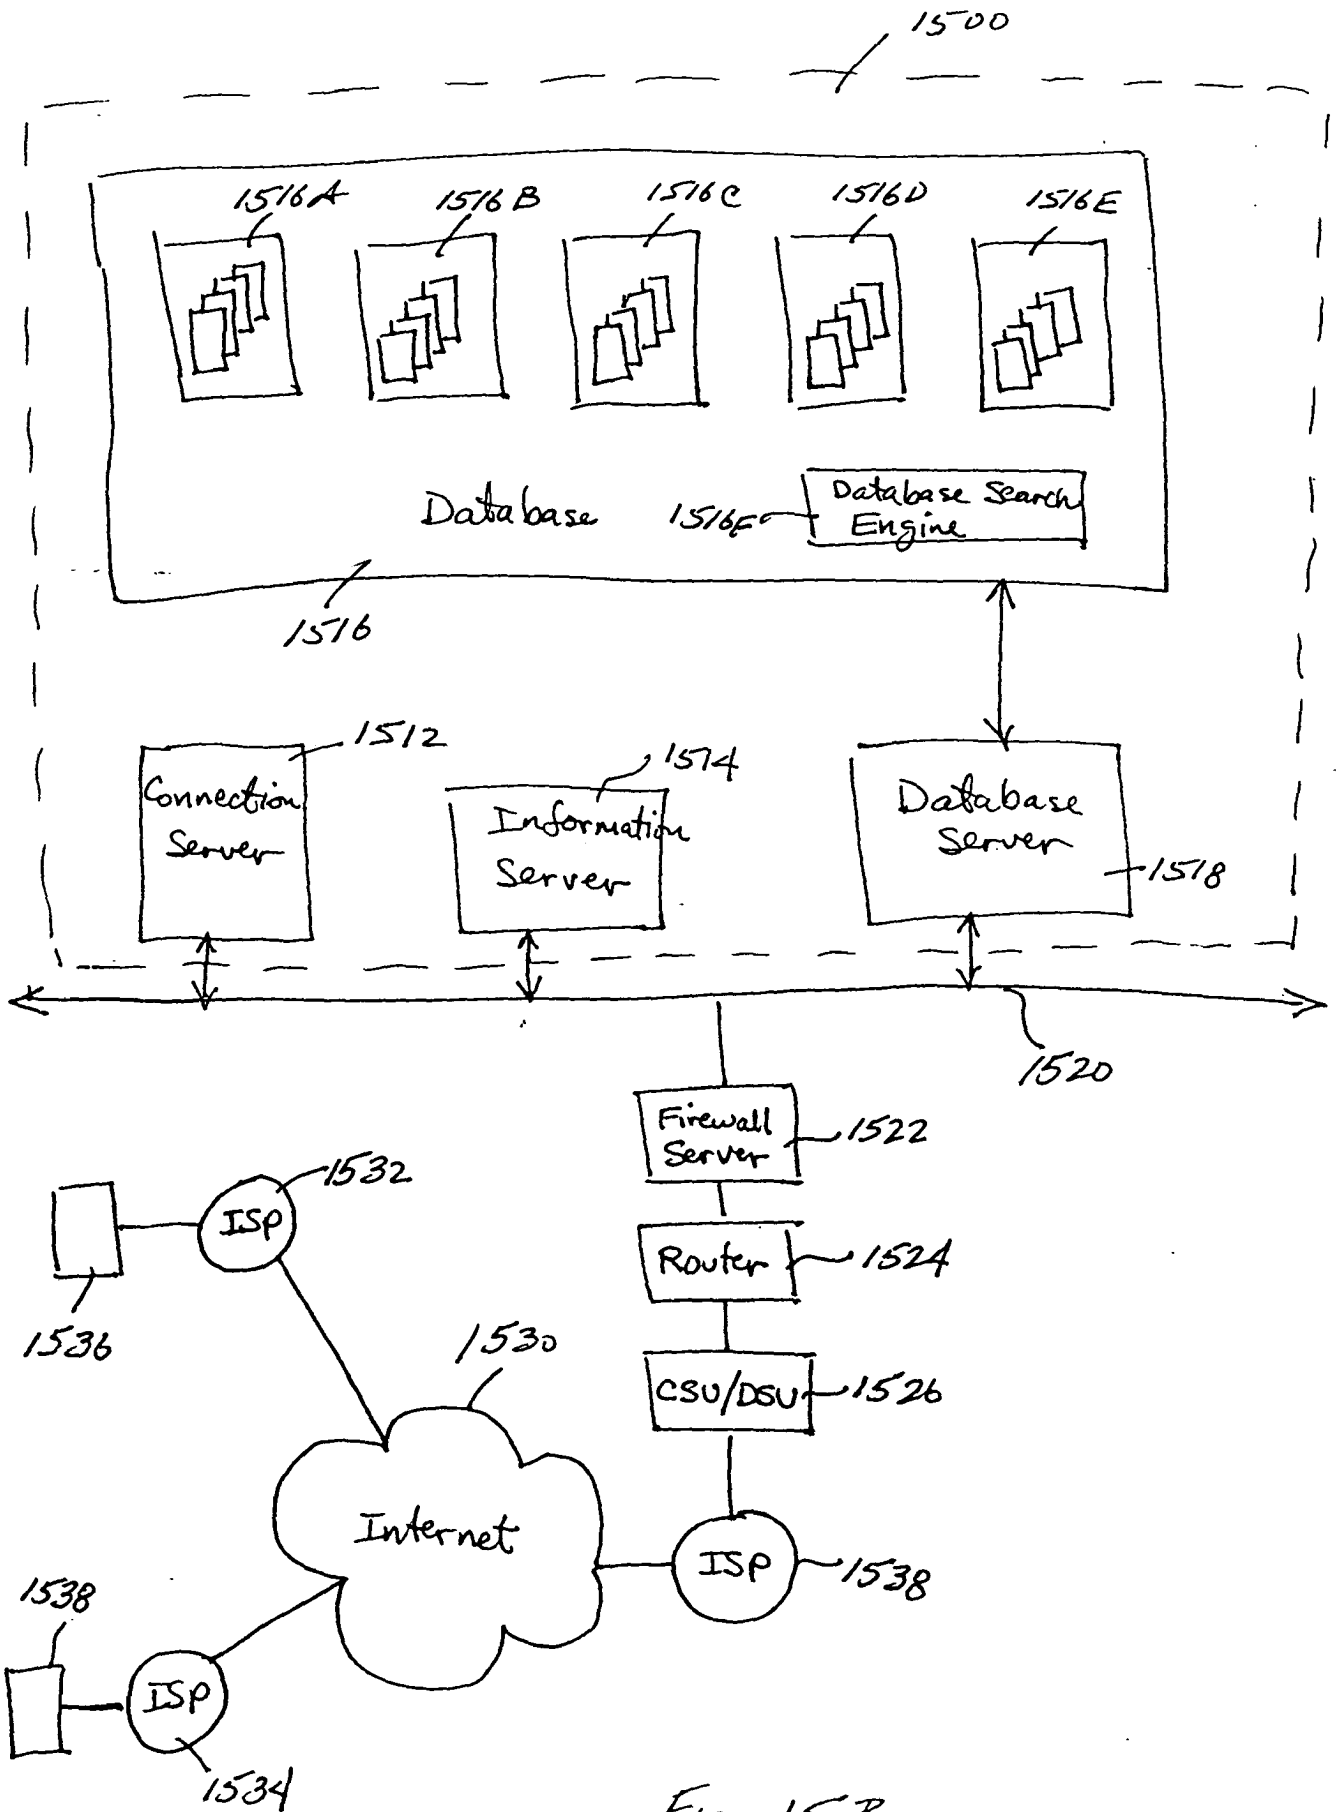 1500
1516A
1516B
1516C
1516D
1516E
Database
1516F
Database Search
Engine
1516
1512
Connection
Server
1514
Information
Server
Database
Server
1518
1520
Firewall
Server
1522
1532
ISP
1536
Router
1524
1530
CSU/DSU
1526
Internet
ISP
1538
1538
ISP
1534